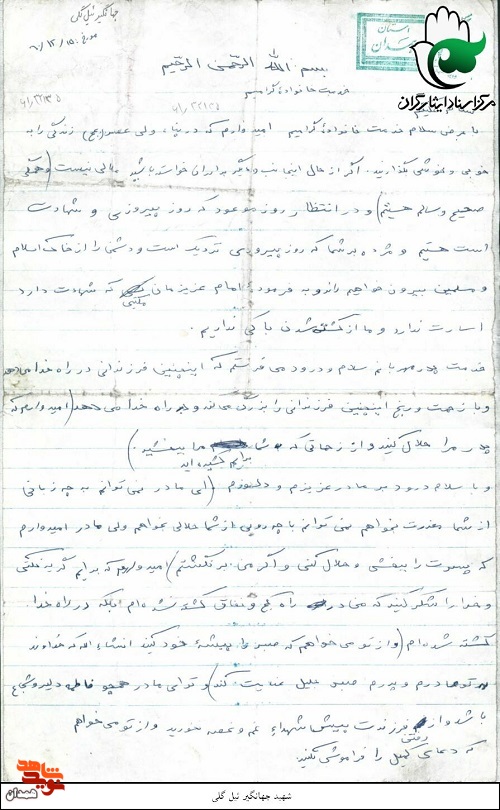 جهانگیر نیل گلی
مورخ: ۶۰/۱۲/۱۵
استان
همدان
مرکز اسناد ایثارگران
بسم الله الرحمن الرحیم
خدمت خانواده گرامیم
۶۱/۲۲۱۳۵
۶۱/۲۲۱۳۵
با عرض سلام خدمت خانوادۀ گرامیم امیدوارم که در پناه ولی عصر (عج) زندگی را به
خوبی و خوشی بگذارنید. اگر از حال اینجانب
باشید ملالی نیست (و همگی
صحیح و سالم هستیم) و در انتظار روز موعود که روز پیروزی و شهادت
است هستیم و مژده بر شما که روز پیروزی نزدیک است و دشمن را از خاک اسلام
و مسلمین بیرون خواهیم راند و به فرمودۀ امام عزیزمان مکتبی که شهادت دارد
اسارت ندارد و ما از کشته شدن باکی نداریم.
خدمت پدر مهربانم سلام و درود می فرستم که اینچنین فرزندانی در راه خدا می دهد
و با زحمت و رنج اینچنین فرزندانی را بزرگ می کند و در راه خدا می دهد (امیدوارم که
پدر مرا حلال کنید و از زحماتی که شما برایم کشیده اید ما ببخشید.)
و با سلام درود بر مادر عزیزم و دلسوزم (ای مادر نمی توانم به چه زبانی
از شما معذرت بخواهم نمی توانم با چه رویی از شما حلالی بخواهم ولی مادر امیدوارم
که پسرت را ببخشی و حلال کنی و اگر من برنگشتم) امیدوارم که برایم گریه نکنی
و خدا را شکر کنید که من در راه کج و منافق کشته نشده ام بلکه در راه خدا
کشته شده ام (و از تو می خواهم که صبر را پیشۀ خود کنید انشاء الله که خداوند
به تو مادرم و پدرم صبر جلیل عنایت کند) و تو ای مادر همچو فاطمه دلیر و شجاع
باشد و از رفتن فرزندت پیش شهداء غم و غصه نخورید و از تو می خواهم
که دعای کمیل را فراموش نکنید.
شاهد
نوید
همدان
شهید جهانگیر نیل گلی